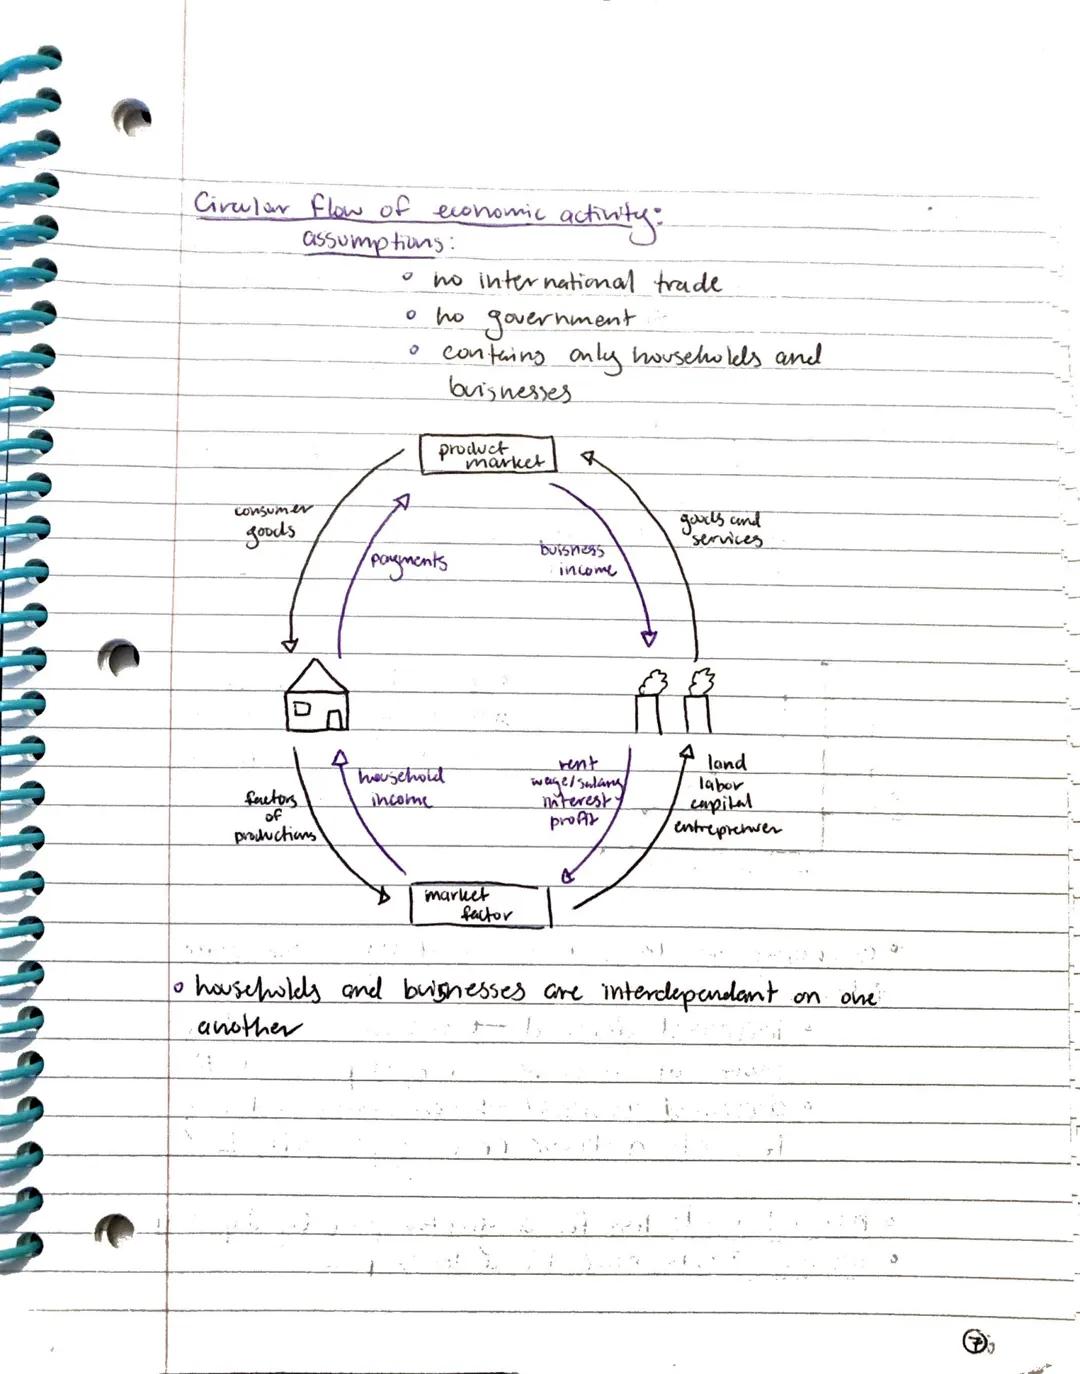 Circular flow of economic activity:
assumptions:
◦ no international trade
◦ no government
◦ contains only households and
buisnesses
product
market
consumer
goods
payments
buisness
income
goods and
services
household
income
factors
of
productions
rent
wage/salary
interest
profit
land
labor
capital
entreprenuer
market
factor
◦ households and buisnesses are interdependant on one
another
7